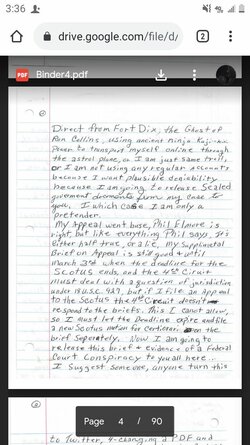 3:36
4G 41%
drive.google.com/file/d/
2
PDF Binder4.pdf
Direct from Fort Dix, the Ghost of
Ron Collins, using ancient ninja Kuji-Kiri
Power to transport myself online through
the astral plane, or I am just some troll,
or I am not using any regular accounts
because I want plausible deniability
because I am going to release Sealed
government documents from my case to
you, I which case I am only a
pretender.
My Appeal went bade, Phil Elmore is
right but like everything Phil says, it's
either half true, or a lie, my Supplimental
Brief on Appeal is still good until
March 23rd when the deadline for the
Scotus ends, and the 4th Circuit
must deal with a question of jurisdiction
under 18 U.S.C. 927, but if I file an Appeal
to the Scotus the 4th Circuit doesn't
respond to the briefs. This I cannot allow,
so I must let the Deadline expire and file
a new Scotus motion for Certiorari on the
brief Seperately. Now I am going to
release this brief + evidence of a Federal
Court Conspiracy to you all here..
I Suggest Someone, anyone turn this
Page 4 / 90
to Twitter, 4-changing a PDF and